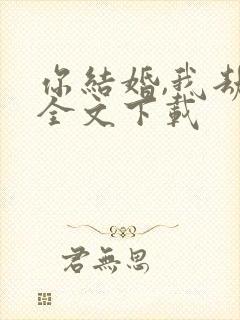 你結婚,我劫
全文下載
君無思